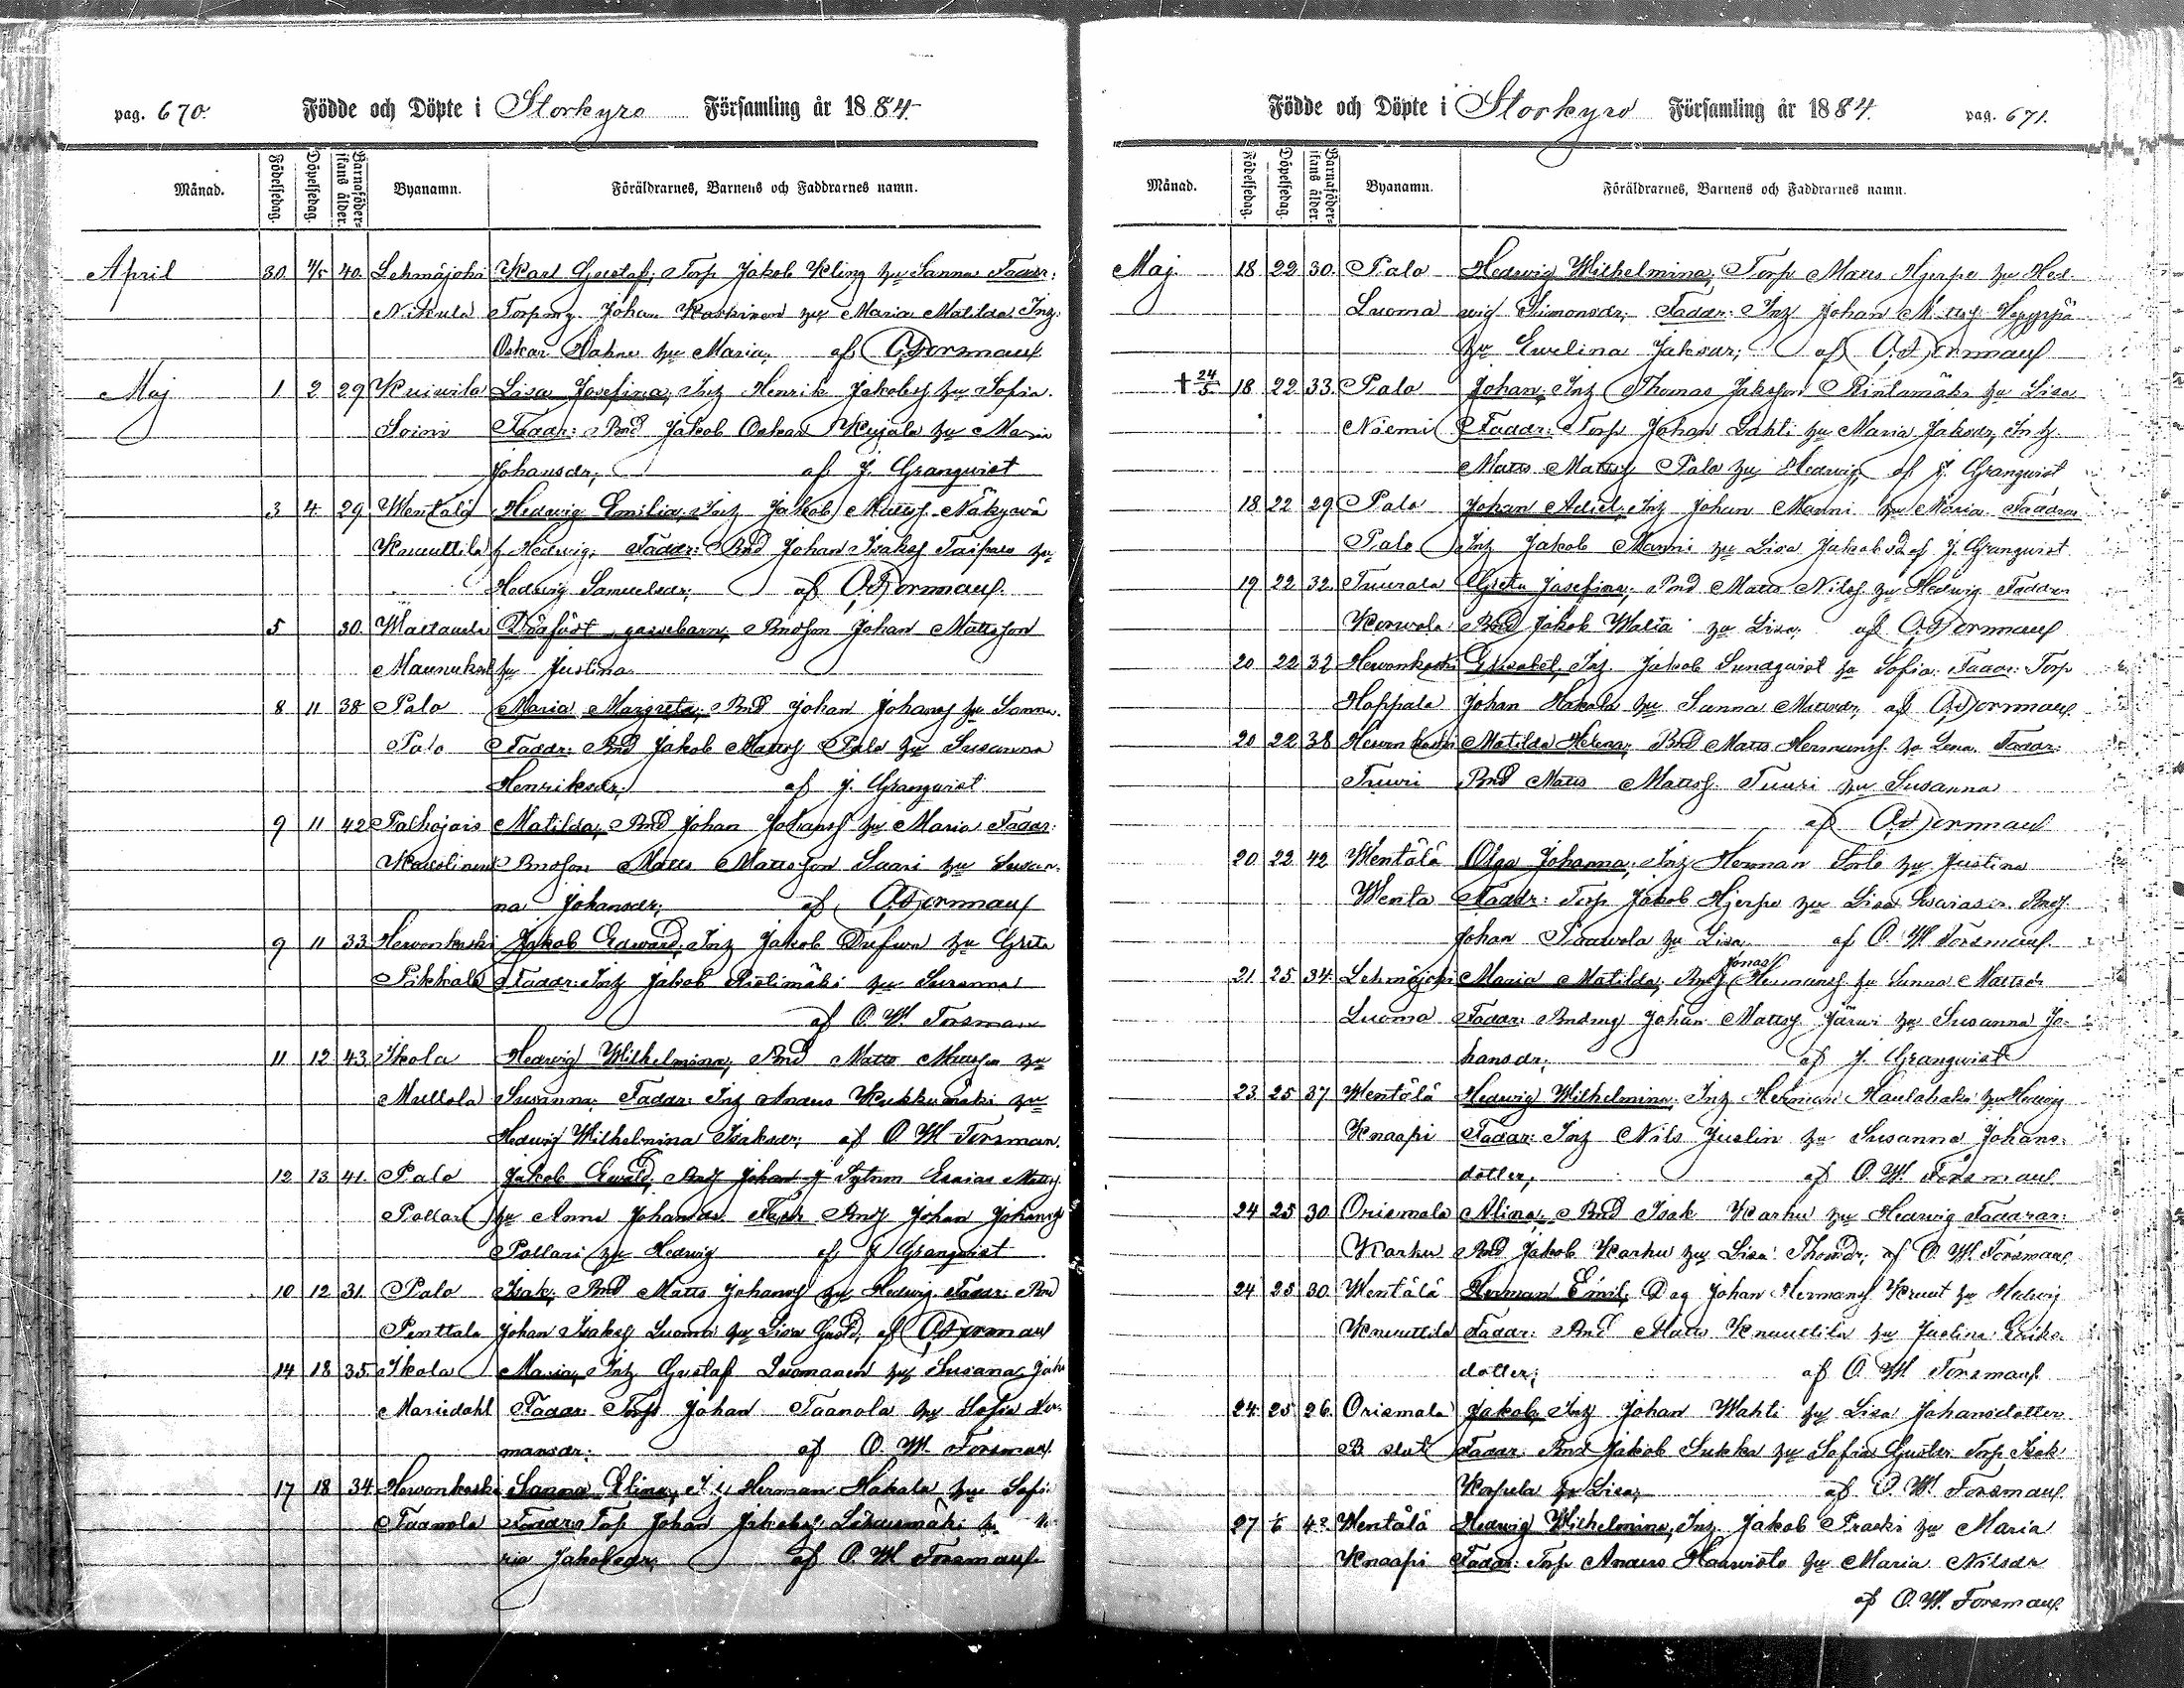 pag. 670. Födde och Döpte i Storkyro Församling år 1884.
Månad. Födelsedag. Döpelsedag. Barnaföder=skans ålder. Byanamn. Föräldrarnes, Barnens och Faddrarnes namn.
April 30. 4/5 40. Karl Gustaf; Torp Jakob Kling hu Sanna Fadar:
Nikula Torpmg. Johan hu Maria Matilda, Inh.
Oskar hu Maria, af O. Forsman
Maj 1 2 29 Kuiwila Lisa Josefina; Inh Henrik Jakobsf hu Sofia.
Soini Fadar: Bnd Jakob Oskar Kujala hu Maria
Johansdr; af J. Granqvist
3 4 29 Wentälä Hedwig Emilia; Inh Jakob Mattsf.
Knuuttila h Hedwig; Fadar: Bnd Johan Isaksf Taipus hu
Hedwig Samuelsdr; af O. Forsman
5 30. Waltaala Dödfödt gossebarn; Bndson Johan Mattsson
Maunuksela hu Justina
8 11 38 Palo Maria Margreta; Bnd Johan Johansf hu Sanna.
Palo Fadar: Bnd Jakob Mattsf Palo hu Susanna
Henriksdr; af J. Granqvist
9 11 42 Palhojais Matilda; Bnd Johan Johansf hu Maria Fadar:
Bndson Matts Mattsson Saari hu Susan-
na Johansdr; af O. Forsman
9 11 33 Herronkoski Jakob Edward; Inh Jakob hu Greta
Pikkala Fadar: Inh Jakob Ristimäki hu Susanna
af O. W. Forsman
11 12 43 Ikola Hedwig Wilhelmina; Bnd Matts hu
Mullola Susanna; Fadar: Inh Anders Kukkumäki hu
Hedwig Wilhelmina Isaksdr; af O. W. Forsman.
12 13 41. Palo Jakob Ewald; Johan Esaias Mattsf
Pollari hu Anna Johansdr Johan Johansf
Pollari hu Hedwig af J Granqvist
10 12 31. Palo Isak; Bnd Matts Johansf hu Hedwig Fadar: Bnd
Penttala Johan Isaksf Luoma hu Lisa Gustd; af O. Forsman
14 18 35. Ikola Maria; Inh Gustaf Luomanen hu Susana
Mariedahl Fadar: Torp Johan Taanola hu Sofia Her-
mansdr: af O. W. Forsman
17 18 34 Herronkoski Sanna Elina; Herman Hakala hu Sofi
Taanola Fadar: Torp Johan Jakobsf hu Ma
ria Jakobsdr; af O. W. Forsman
Födde och Döpte i Storkyro Församling år 1884. pag. 671.
Månad. Födelsedag. Döpelsedag. Barnaföder=skans ålder. Byanamn. Föräldrarnes, Barnens och Faddrarnes namn.
Maj. 18 22 30. Palo Hedwig Wilhelmina; Torp Matts Hjerpe hu Hed-
Luoma wig Simonsdr; Fadar: Inh Johan
hu Ewelina Jaksdr; af O. Forsman
† 24/5 18 22 33. Palo Johan; Inh Thomas Jaksson Rintamäki hu Lisa
Niemi Fadar: Torp Johan Lahti hu Maria Jaksdr, Inh.
Matts Mattsf Palo hu Hedwig, af J. Granqvist
18 22 29 Palo Johan Adiel; Inh Johan Manni hu Maria Faddrar
Palo Inh Jakob Manni hu Lisa Jakobsd af J. Granqvist
19 22 32. Tuurala Greta Josefina; Bnd Matts Nilsf hu Hedwig Faddrar
Bnd Jakob Walta hu Lisa. af O. Forsman
20 22 32 Herronkoski Elisabet; Inh Jakob Sundqvist hu Sofia Fadar: Torp
Hoppala Johan Hakala hu Sanna Mattsdr; af O. Forsman
20 22 38 Matilda Helena; Bnd Matts Hermansf. hu Lena. Fadar:
Tuuri Bnd Matts Mattsf. Tuuri hu Susanna
af O. Forsman
20. 22 42 Wentälä Olga Johanna; Inh Herman hu Justina
Wenta Fadar: Torp Jakob Hjerpe hu Lisa
Johan Paawola hu Lisa af O. W. Forsman
21. 25 34. Maria Matilda; Jonas Hermansf hu Sanna Mattsdr
Luoma Fadar: Bndmg Johan Mattsf Järwi hu Susanna Jo-
hansdr; af J. Granqvist
23. 25 37 Wentälä Hedwig Wilhelmina; Inh Herman Haulahaka hu Hedwig
Knaapi Fadar: Inh Nils Juslin hu Susanna Johans-
dotter; af O. W. Forsman
24 25 30 Orismala Alina; Bnd Isak Karhu hu Hedwig Faddrar:
Karhu Bnd Jakob Karhu hu Lisa Thomdr; af O. W. Forsman
24 25 30. Wentälä Herman Emil; Johan Hermansf hu Hedwig
Knuuttila Fadar: Bnd Matts Knuuttila hu Justina Eriks-
dotter; af O. W. Forsman
24. 25 26. Orismala Jakob; Inh Johan Wahti hu Lisa Johansdotter
Fadar: Bnd Jakob Sukka hu Sofia Gustdr. Torp Isak
hu Lisa; af O. W. Forsman
27 42 Wentälä Hedwig Wilhelmina; Inh. Jakob Praski hu Maria
Knaapi Fadar: Torp Anders Haawisto hu Maria Nilsdr
af O. W. Forsman